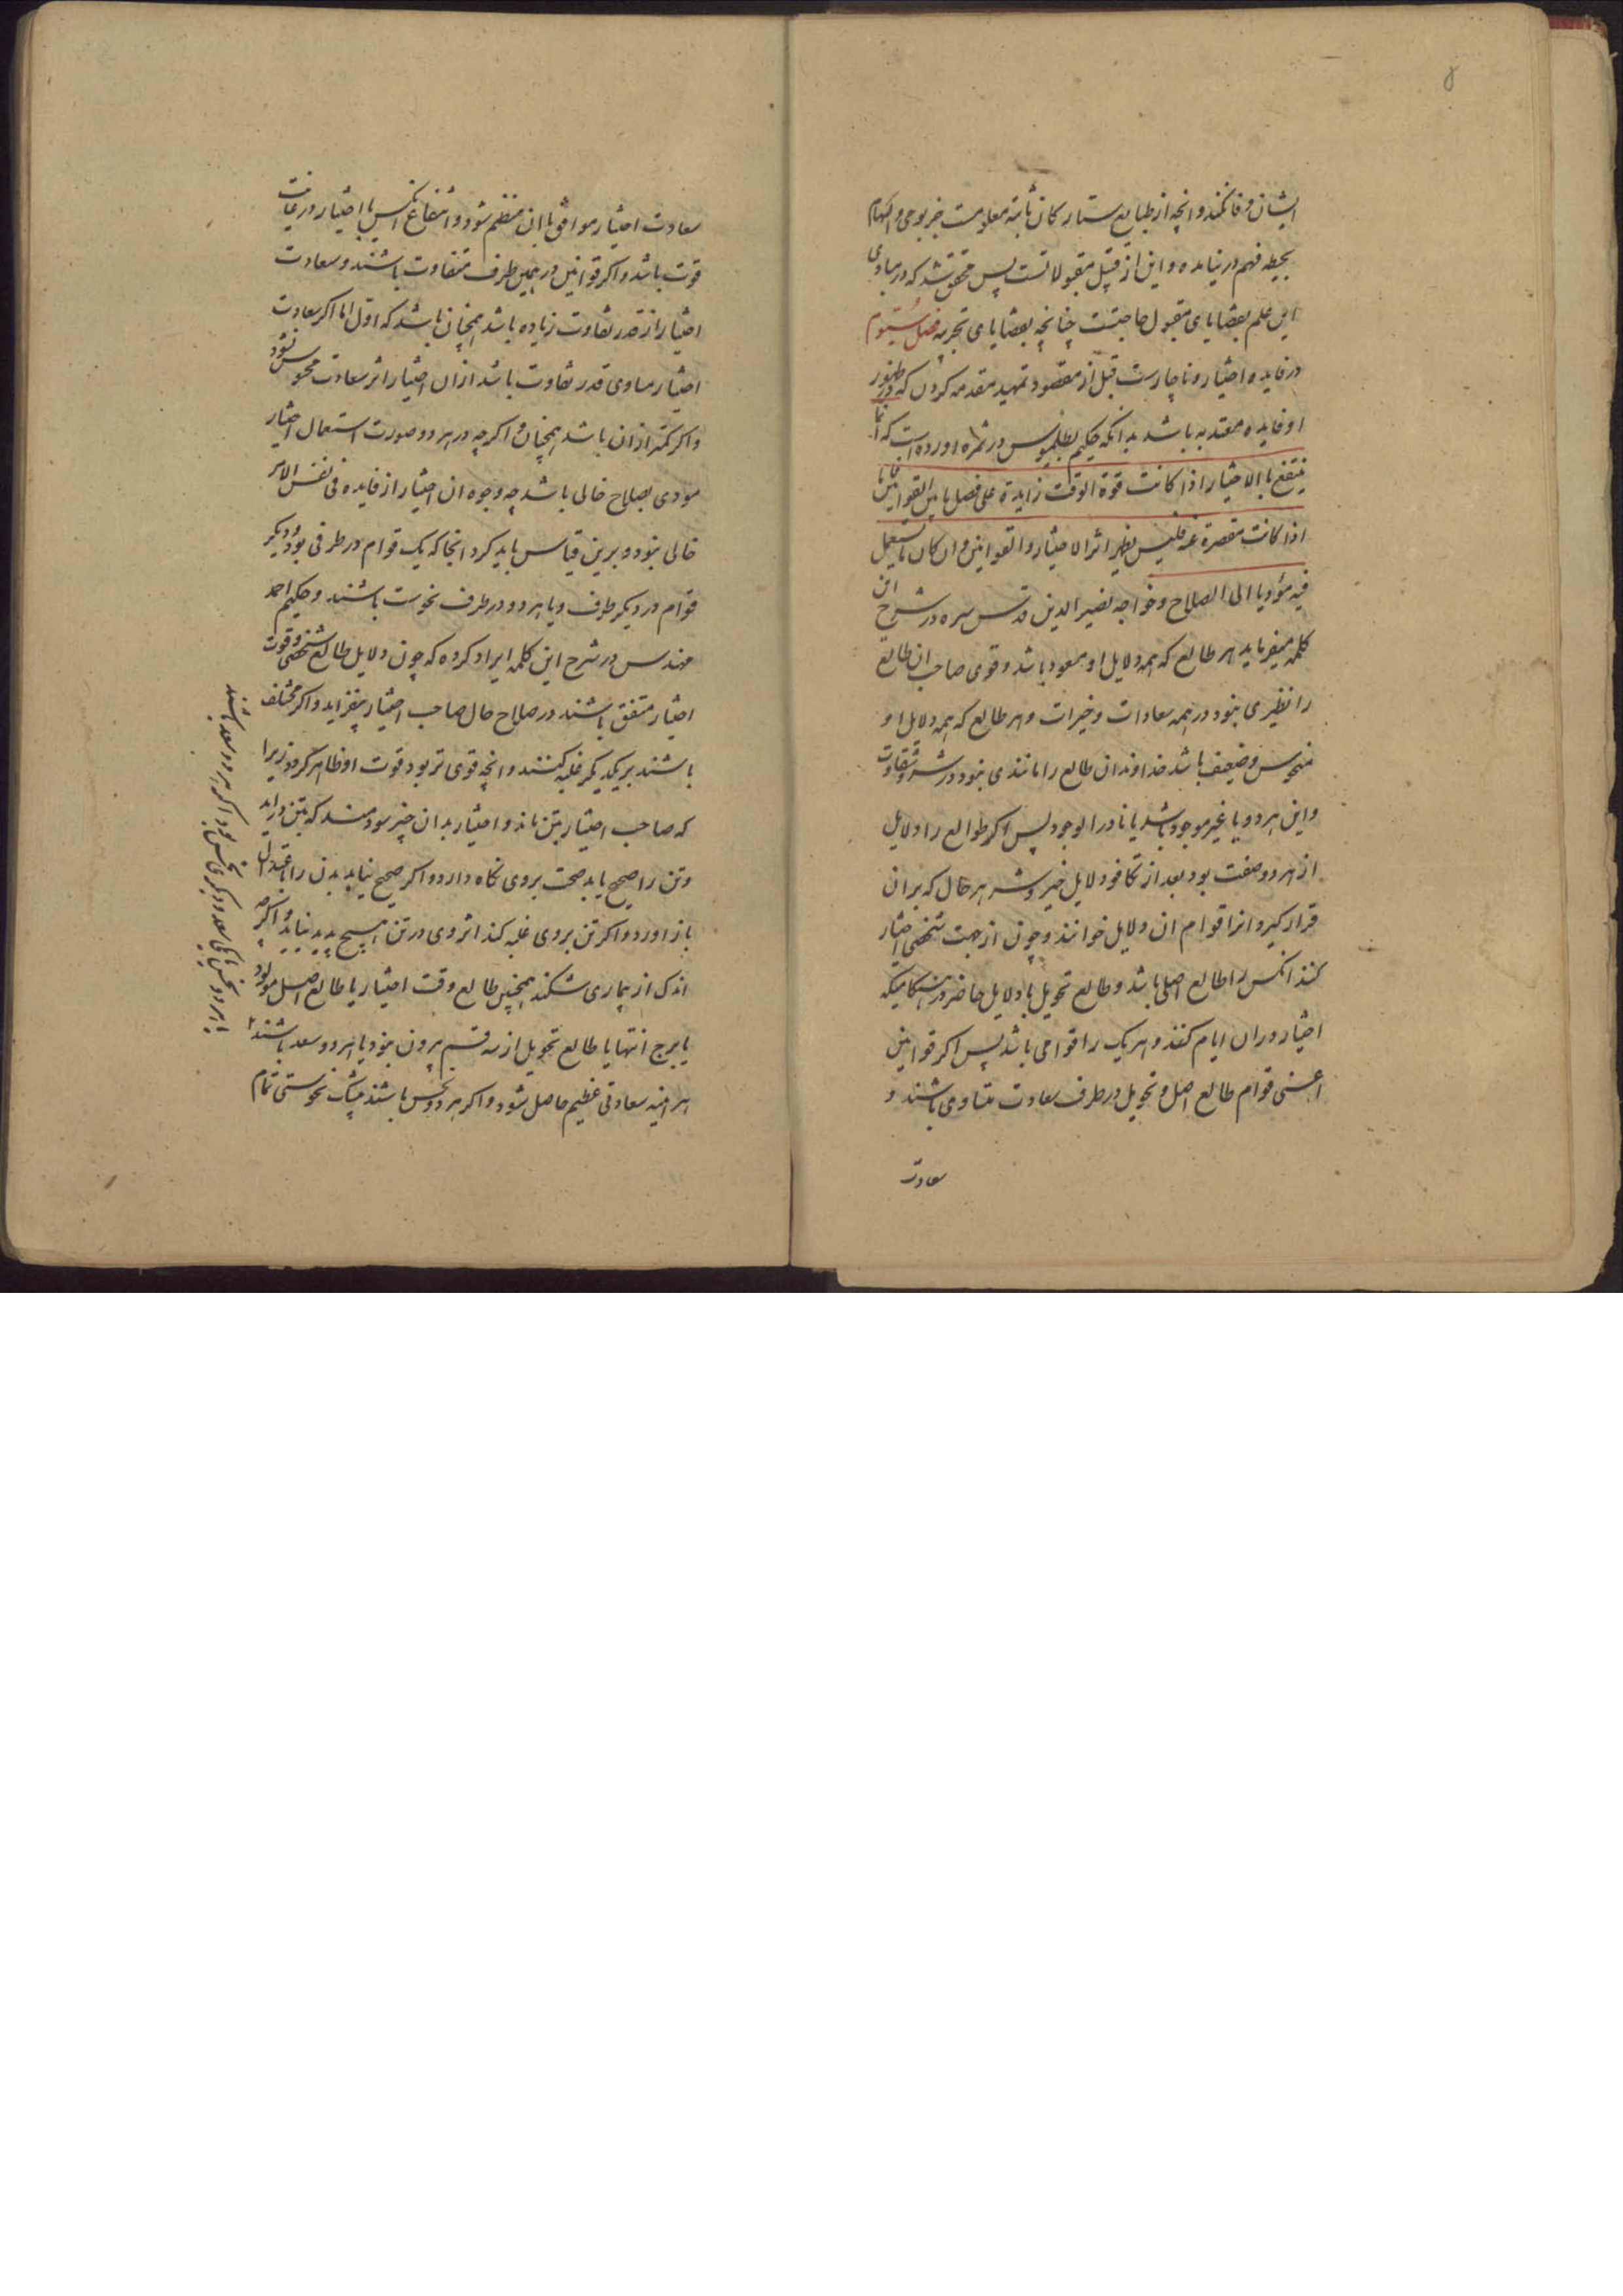 ایشان وفا نکند و انچه از طبایع ستارکان ثابته معلومست جز بوحی و الهام
بحیطه فهم در نیاید و این از قبیل مقبولاتست پس محقق شد که در مبادی
این علم بقضایای مقبول حاجتست چنانچه بقضایای تجربه فصل سیوم
در فایده اختیار و ناچارست قبل از مقصود تمهید مقدمه کردن که در ظهور
او فایده معتد به باشد بدانکه حکیم بطلمیوس در ثمره اورده است که انما
ینتفع بالاختیار اذا کانت قوة الوقت زایدة علی فصل ما بین القوامین فاما
اذا کانت مقصرة عنه فلیس یظهر اثر الاختیار و القوامین و ان کان ما یستعمل
فیه مؤدیا الی الصلاح و خواجه نصیر الدین قدس سره در شرح این
کلمه میفرماید هر طالع که همه دلایل او مسعود باشد و قوی صاحب ان طالع
را نظیری نبود در همه سعادات و خیرات و هر طالع که همه دلایل او
منحوس و ضعیف باشد خداوند ان طالع را مانندی نبود در شر و شقاوت
و این هر دو یا غیر موجود باشد یا نادر الوجود پس اکر طوالع را دلایل
از هر دو صفت بود بعد از تکافو دلایل خیر و شر هر حال که بران
قرار کیرد انرا قوام ان دلایل خوانند و چون از جهت شخصی اختیار
کنند انکس را طالع اصلی باشد و طالع تحویل با دلایل حاضر در هنکامیکه
اختیار دران ایام کنند و هر یک را قوامی باشد پس اکر قوامین
اعنی قوام طالع اصل و تحویل در طرف سعادت متساوی باشند و
سعادت
سعادت اختیار موافق با ان منظم شود و انتفاع انکس با اختیار در غایت
قوت باشد و اکر قوامین در همین طرف متفاوت باشند و سعادت
اختیار از قدر تفاوت زیاده باشد همچنان باشد که اول اما اکر سعادت
اختیار مساوی قدر تفاوت باشد از ان اختیار اثر سعادت محسوس نشود
و اکر کمتر از ان باشد همچنان و اکرچه در هر دو صورت استعمال اختیار
مودی بصلاح حالی باشد چه وجوه ان اختیار از فایده فی نفس الامر
خالی نبود و برین قیاس باید کرد انجا که یک قوام در طرفی بود و دیکر
قوام در دیکر طرف و یا هر دو در طرف نحوست باشند و حکیم احمد
مهندس در شرح این کلمه ایراد کرده که چون دلایل طالع شخصی و قوت
اختیار متفق باشند در صلاح حال صاحب اختیار بیفزاید و اکر مختلف
باشند بر یکدیکر غلبه کنند و انچه قوی تر بود قوت او ظاهر کردد زیرا
که صاحب اختیار بتن ماند و اختیار بدان چیز سودمند که بتن دراید
و تن را صحیح یابد صحت بر وی نکاه دارد و اکر صحیح نیابد بدن را باعتدال
باز اورد و اکر تن بر وی غلبه کند اثر وی در تن هیچ پدید نیاید و اکرچه
اندک از بیماری شکند همچنین طالع وقت اختیار یا طالع اصل مولود
یا برج انتها یا طالع تحویل از سه قسم بیرون نبود یا هر دو سعد باشند
هر اینه سعادتی عظیم حاصل شود و اکر هر دو نحس باشند بیشک نحوستی تمام
یا هر دو نحس یا یکی سعد و دیکری نحس بود اکر هر دو سعد باشند